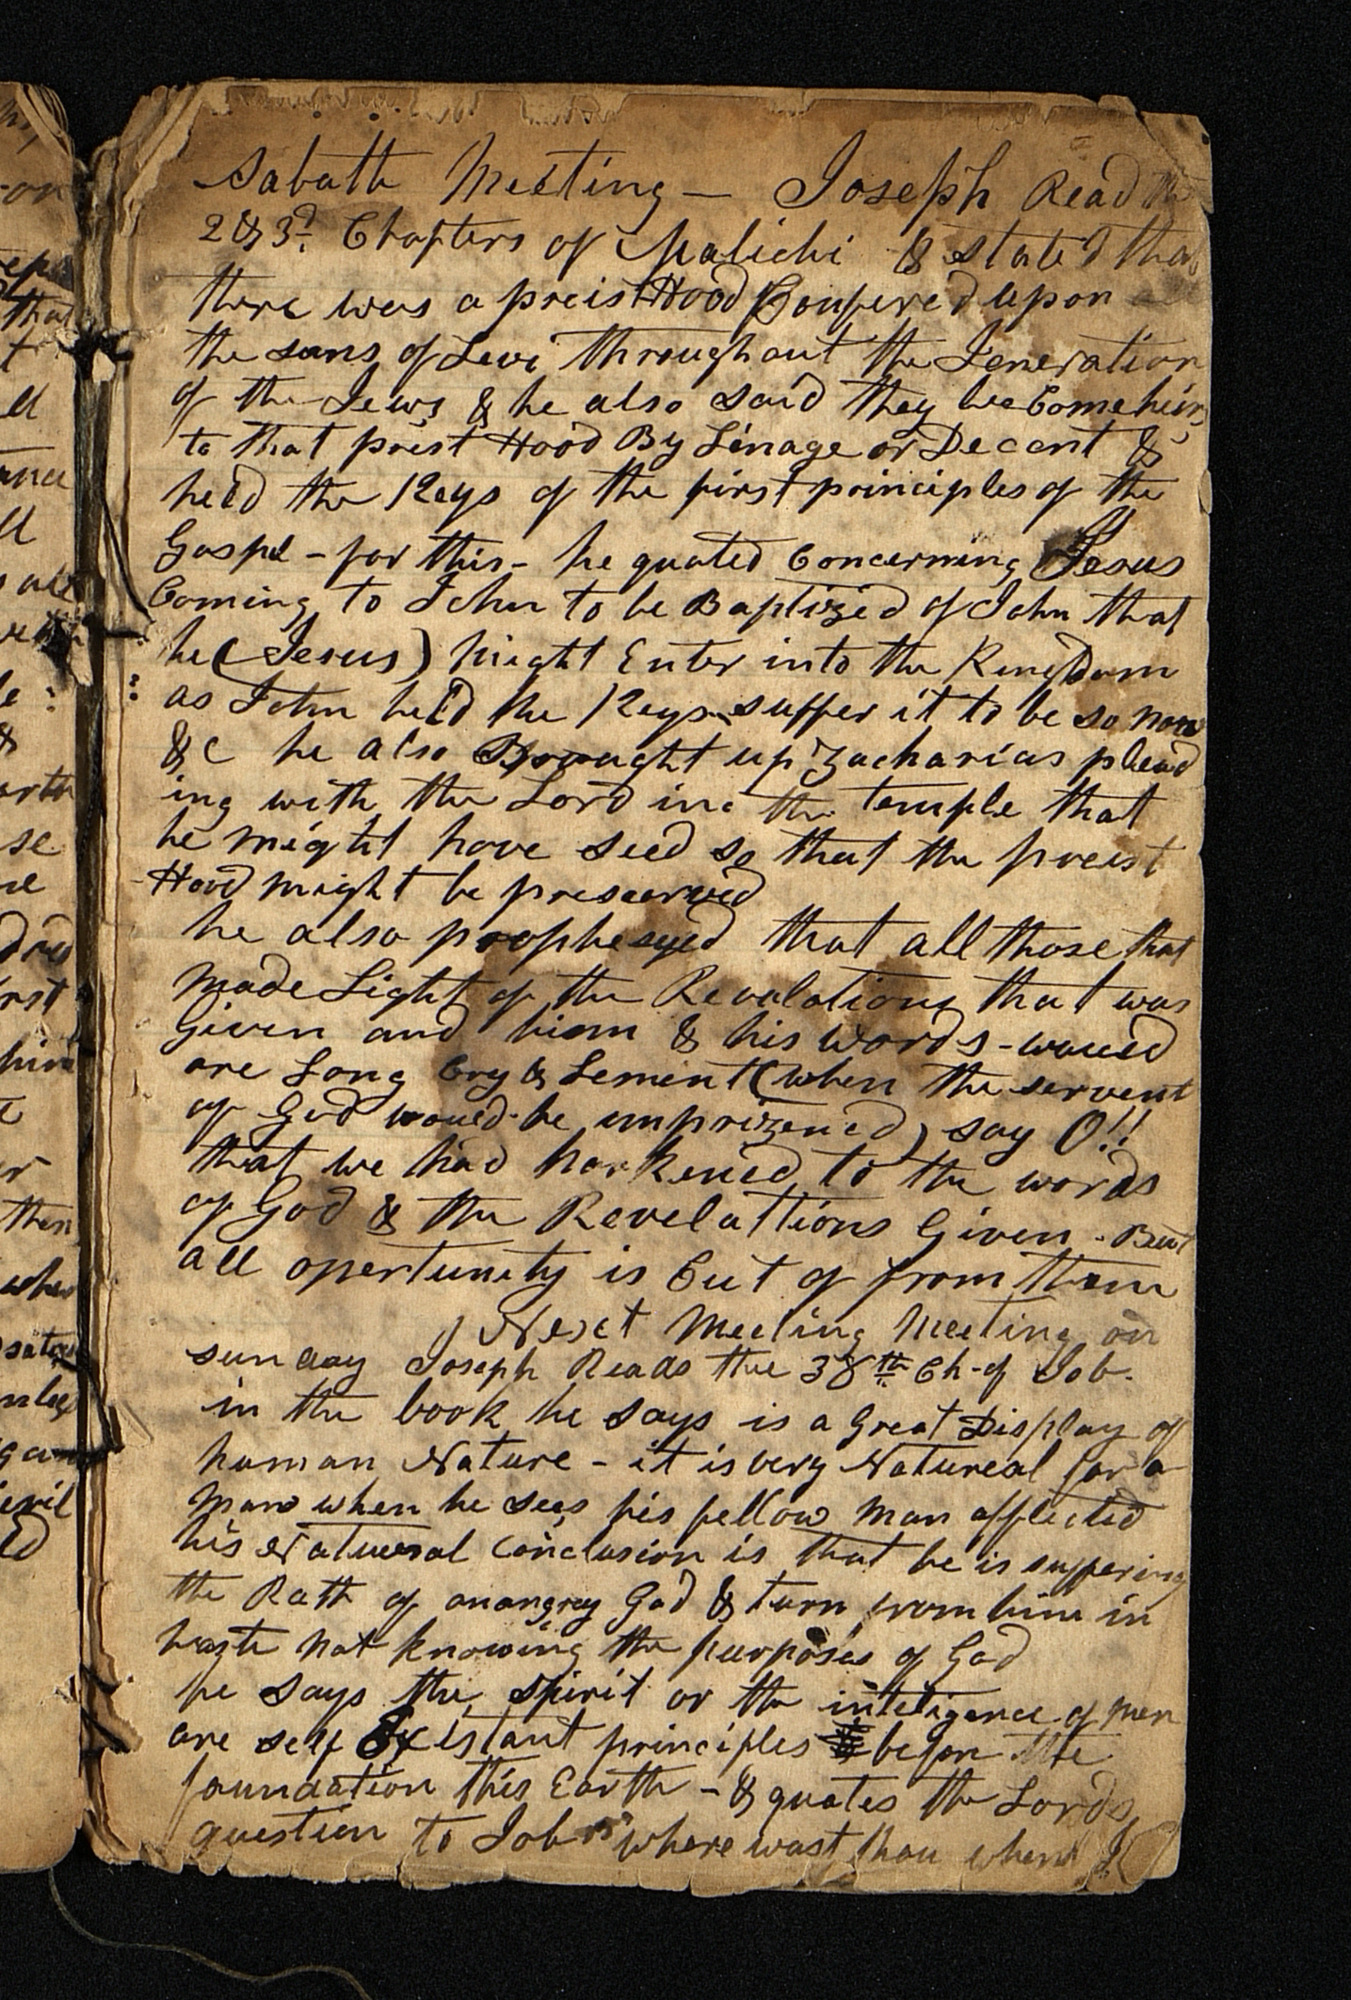 Sabath Meeting — Joseph Read the
2 & 3d. Chapters of Malichi & stated that
there was a preist Hood Confered upon
the sons of Levi throughout the Jeneration
of the Jews & he also said they become heirs
to that prest Hood By Linage or Decent &
held the Keys of the first principles of the
Gospel - for this - he quated Concerning Jesus
Coming to John to be Baptized of John that
he (Jesus) might Enter into the Kingdom
as John held the Keys suffer it to be so now
&c he also Brought up Zacharias plead
ing with the Lord in the temple that
he might have seed so that the preist
Hood might be preserved
he also prophesyed that all those that
made Light of the Revalations that was
Given and him & his Words - woued
are Long Cry & Lement (when the servent
of God woued be imprizened) say O!!
that we had harkened to the words
of God & the Revelations Given - But
all opertunity is Cut of from them
Next Meeting Meeting on
sunday Joseph Reads the 38th Ch- of Job.
in the book he says is a Great Display of
human Nature - it is very Natureal for a
man when he sees his fellow man afflicted
his Natureal conclusion is that he is suffering
the Rath of an angrey God & turn from him in
haste not knowing the purposes of God
he says the spirit or the inteligence of men
are self Existant principles before the
foundation this Earth - & quotes the Lords
question to Job "where wast thou when I